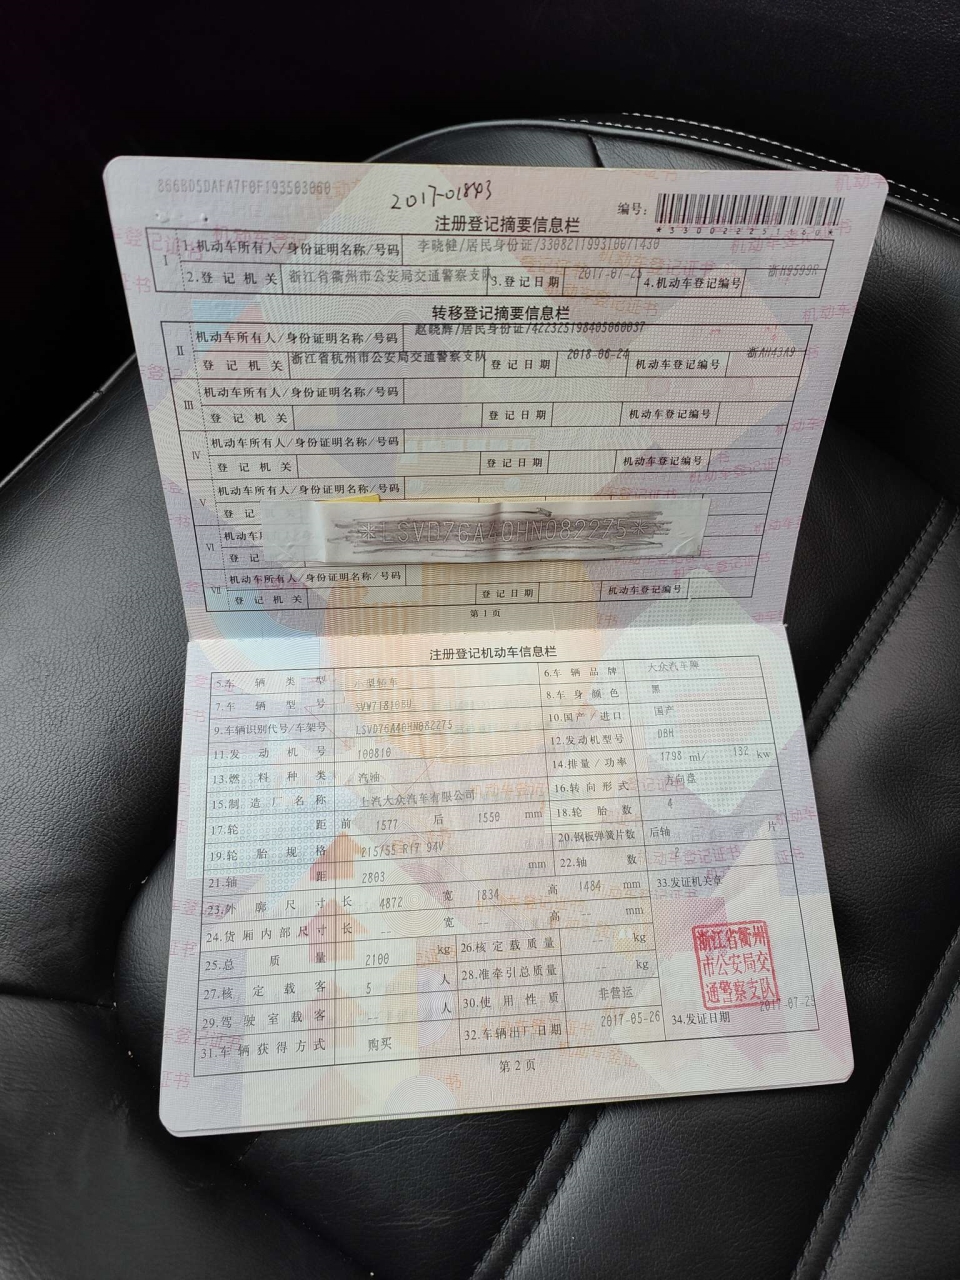 866BD5DAFA7F0F193503060
2017-01843
编号:
*330022251360*
注册登记摘要信息栏
I 1.机动车所有人/身份证明名称/号码 李晓健/居民身份证/330821199310071430
2.登记机关 浙江省衢州市公安局交通警察支队 3.登记日期 2017-07-25 4.机动车登记编号 浙H9599R
转移登记摘要信息栏
II 机动车所有人/身份证明名称/号码 赵晓辉/居民身份证/422325198405060037
登记机关 浙江省杭州市公安局交通警察支队 登记日期 2018-06-24 机动车登记编号 浙AH43A9
III 机动车所有人/身份证明名称/号码
登记机关 登记日期 机动车登记编号
IV 机动车所有人/身份证明名称/号码
登记机关 登记日期 机动车登记编号
V 机动车所有人/身份证明名称/号码
登记
*LSVD76A40HN082275*
VI 机动车
登记
VII 机动车所有人/身份证明名称/号码
登记机关 登记日期 机动车登记编号
第1页
注册登记机动车信息栏
5.车辆类型 小型轿车 6.车辆品牌 大众汽车牌
7.车辆型号 SVW71810EU 8.车身颜色 黑
9.车辆识别代号/车架号 LSVD76A40HN082275 10.国产/进口 国产
11.发动机号 100810 12.发动机型号 DBH
13.燃料种类 汽油 14.排量/功率 1798 ml/ 132 kw
15.制造厂名称 上汽大众汽车有限公司 16.转向形式 方向盘
17.轮距 前 1577 后 1550 mm 18.轮胎数 4
19.轮胎规格 215/55 R17 94V 20.钢板弹簧片数 后轴 片
21.轴距 2803 mm 22.轴数 2
23.外廓尺寸 长 4872 宽 1834 高 1484 mm 33.发证机关章
24.货厢内部尺寸 长 -- 宽 -- 高 -- mm
25.总质量 2100 kg 26.核定载质量 -- kg
27.核定载客 5 人 28.准牵引总质量 -- kg
29.驾驶室载客 -- 人 30.使用性质 非营运
31.车辆获得方式 购买 32.车辆出厂日期 2017-05-26 34.发证日期 2017-07-25
浙江省衢州
市公安局交
通警察支队
第2页